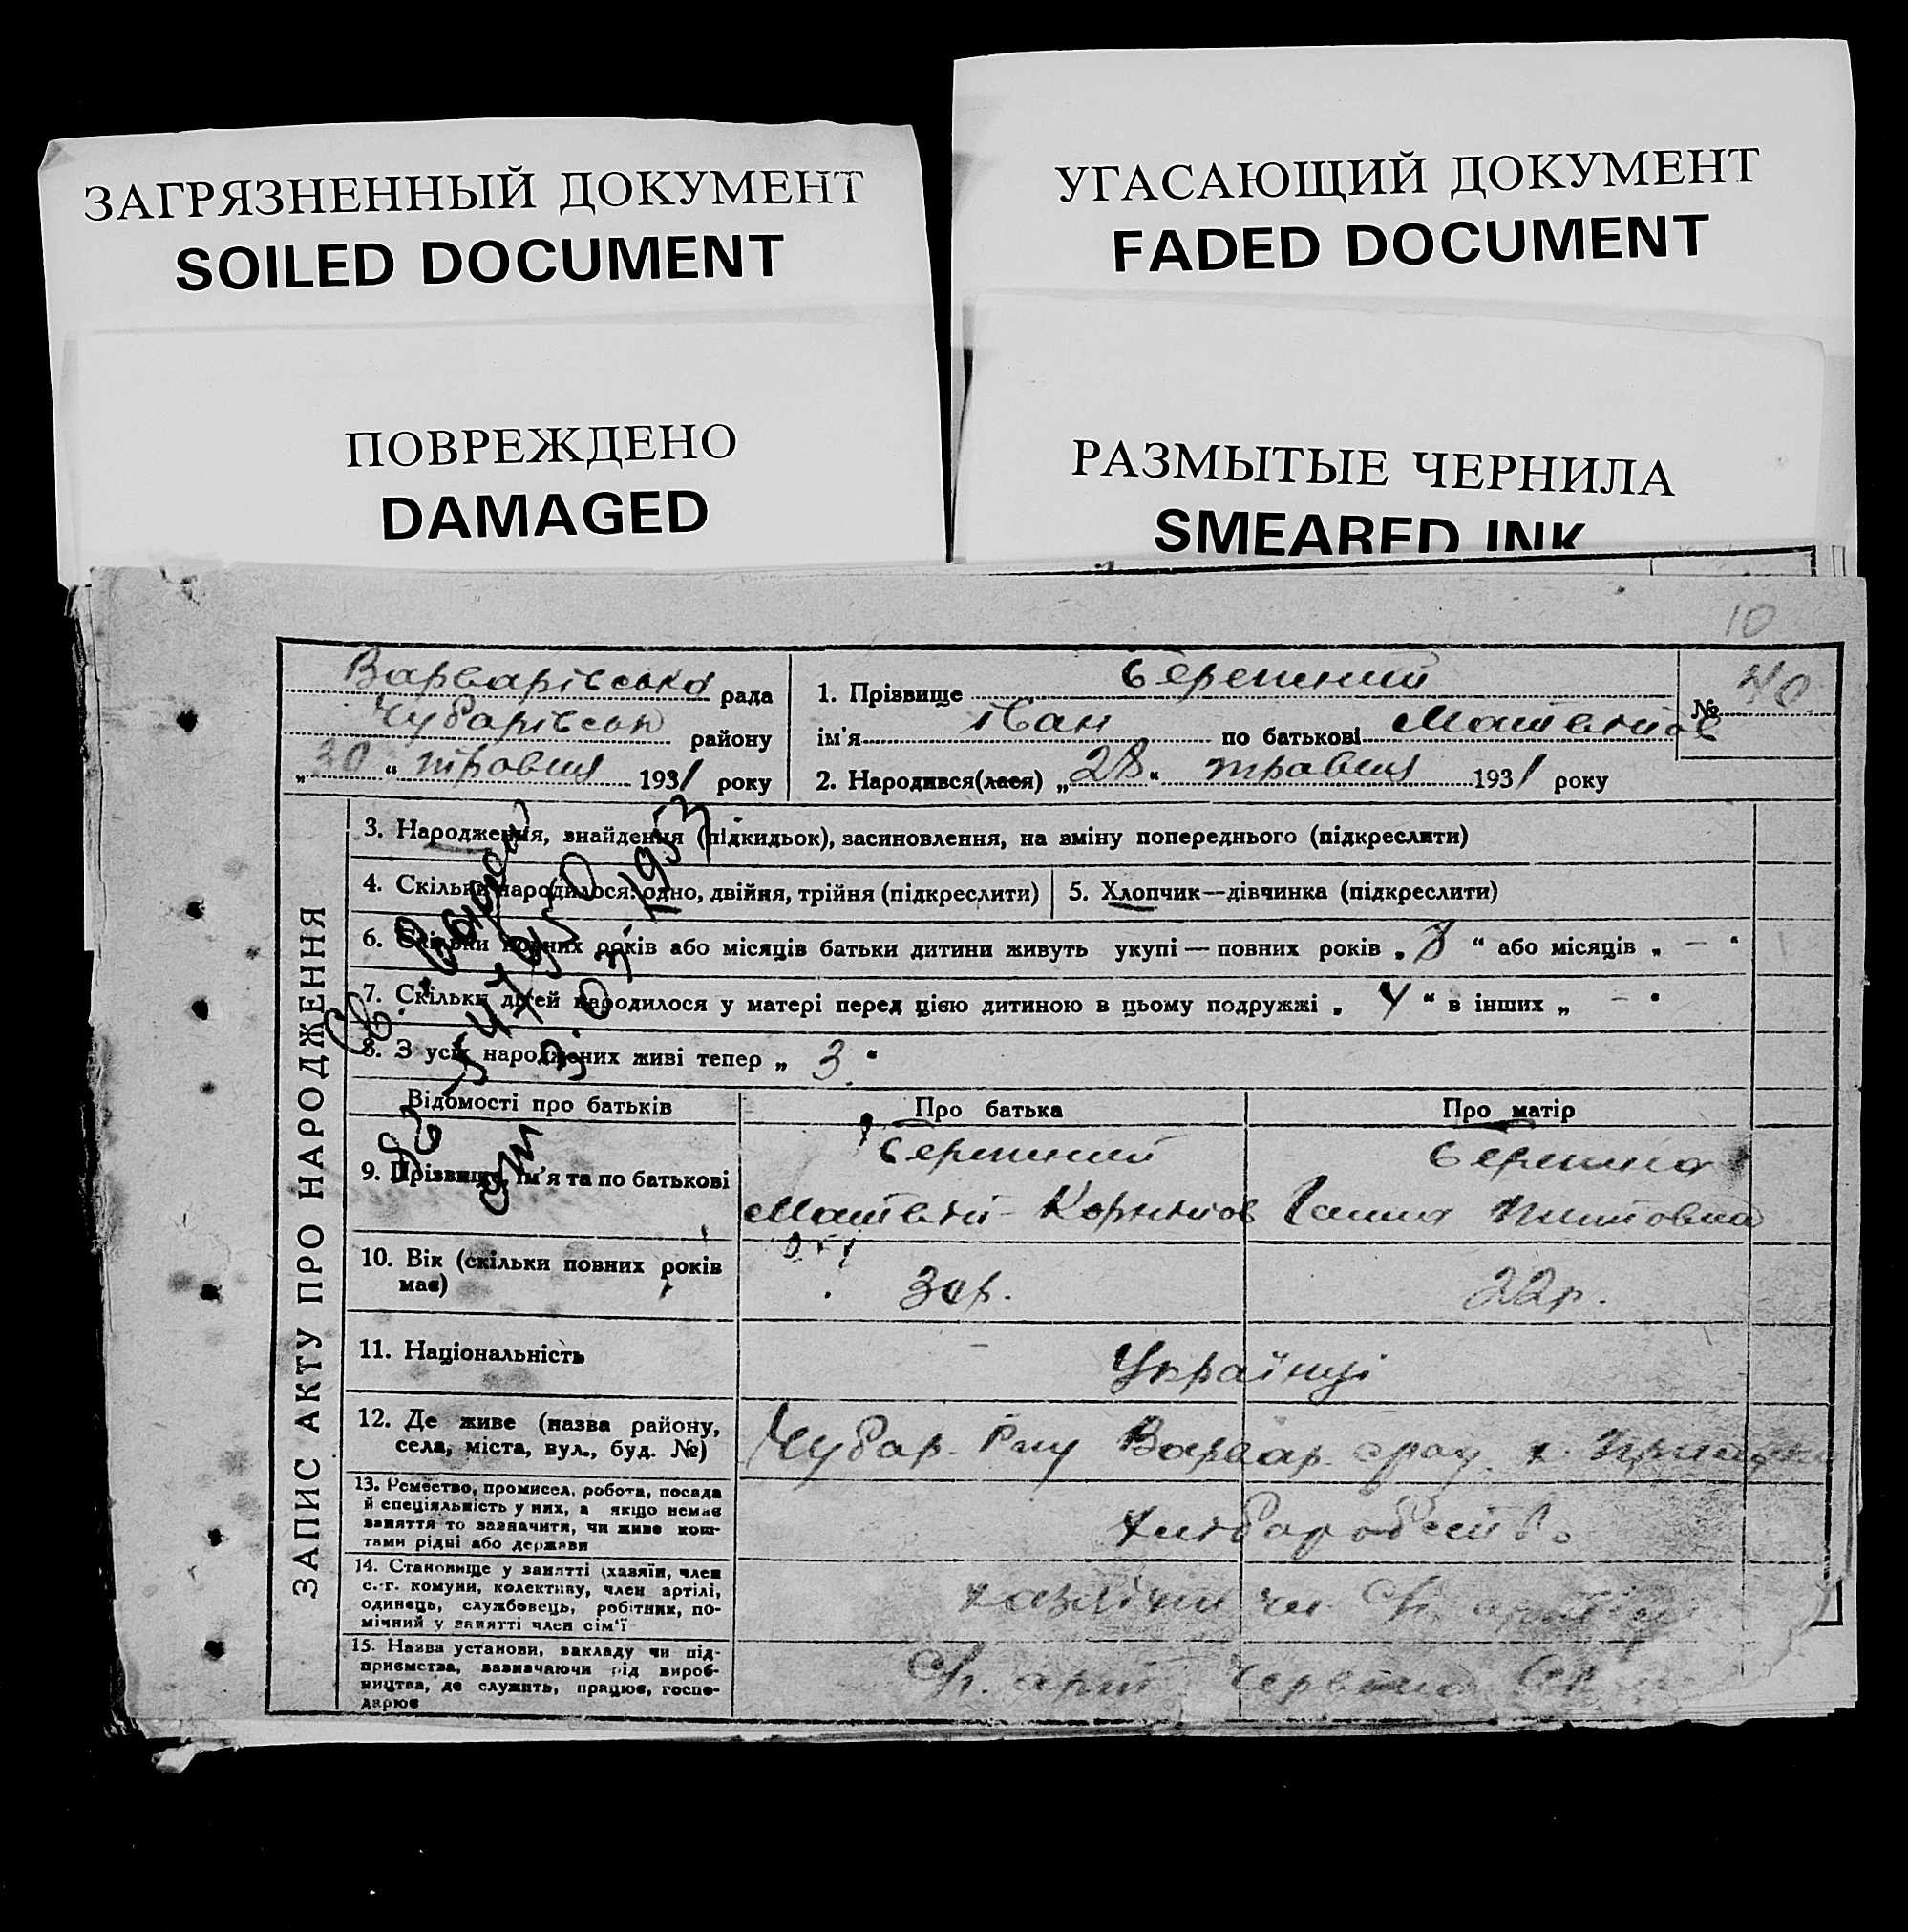 ЗАГРЯЗНЕННЫЙ ДОКУМЕНТ
SOILED DOCUMENT
ПОВРЕЖДЕНО
DAMAGED
УГАСАЮЩИЙ ДОКУМЕНТ
FADED DOCUMENT
РАЗМЫТЫЕ ЧЕРНИЛА
SMEARED INK
10
Варварівська рада
Чубарівськ району
„30“ травня 1931 року
1. Прізвище Бережний
№ 40
ім'я Іван по батькові Матвійов
2. Народився(лася) „28“ травня 1931 року
ЗАПИС АКТУ ПРО НАРОДЖЕННЯ
3. Народження, знайдення (підкидьок), засиновлення, на зміну попереднього (підкреслити)
4. Скільки народилося: одно, двійня, трійня (підкреслити)
5. Хлопчик—дівчинка (підкреслити)
6. Скільки повних років або місяців батьки дитини живуть укупі — повних років „8“ або місяців „—“
7. Скільки дітей народилося у матері перед цією дитиною в цьому подружжі „4“ в інших „—“
8. З усіх народжених живі тепер „3“
Відомості про батьків
Про батька
Про матір
9. Прізвище, ім'я та по батькові
Бережний
Матвій
Бережна
Ганна
10. Вік (скільки повних років має)
30р.
22р.
11. Національність
Українці
12. Де живе (назва району, села, міста, вул., буд. №)
Чубар. р-ну Варвар. срау. х.
13. Ремество, промисел, робота, посада
й спеціяльність у них, а якщо немає
заняття то зазначити, чи живе кош-
тами рідні або держави
хліборобство
14. Становище у занятті (хазяїн, член
с.-г. комуни, колективу, член артілі,
одинець, службовець, робітник, по-
мічний у занятті член сім'ї
чл. артілі
15. Назва установи, закладу чи під-
приємства, зазначаючи рід вироб-
ництва, де служить, працює, госпо-
дарює
арт. Червона